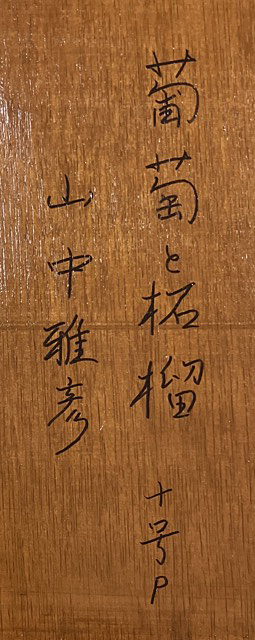 葡萄と柘榴 十号P
山中雅彦